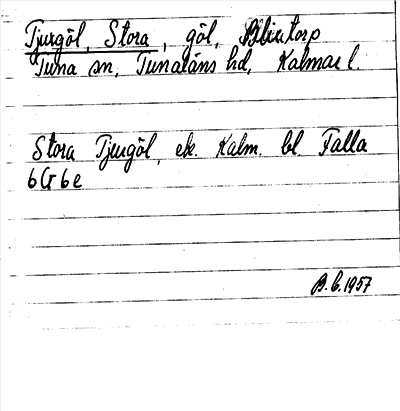 Tjurgöl, Stora, göl,
Tuna sn, Tunaläns hd, Kalmar l.
Stora Tjurgöl, ek. Kalm. bl. Falla
6G 6e
B.b. 1957